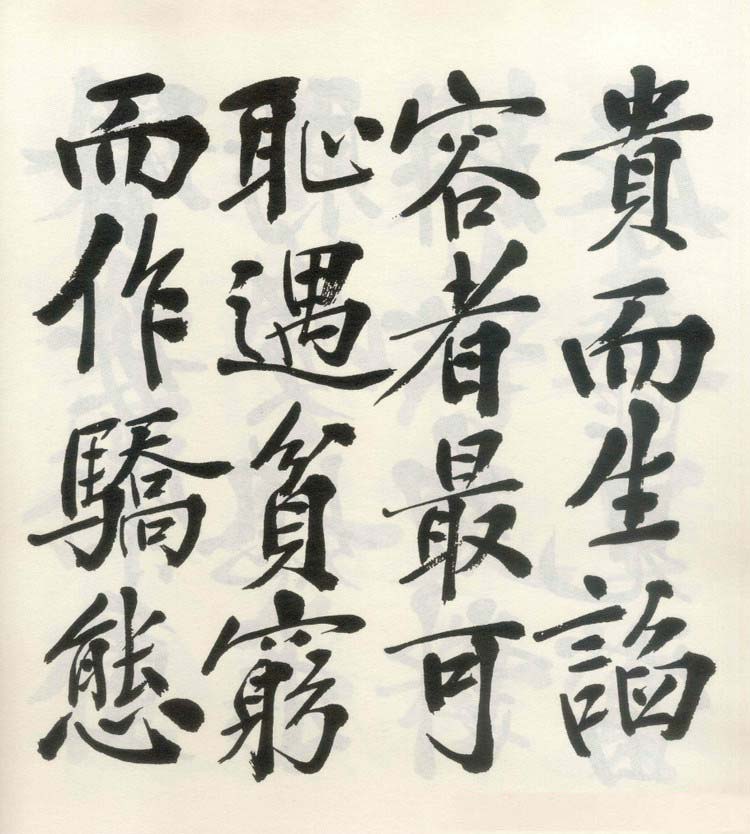 貴而生諂
容者最可
恥遇貧窮
而作驕態